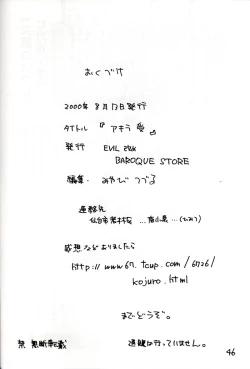 おくづけ
2000年 8月13日発行
タイトル 『アキラ愛』
発行 EVIL
BAROQUE STORE
編集・ みやび つづる
連絡先
仙台市若林区 ...
感想などありましたら
http:// www67.tcup.com / 6726/
kojuro.html
までどうぞ。
禁 無断転載 通販は行っていません。
46